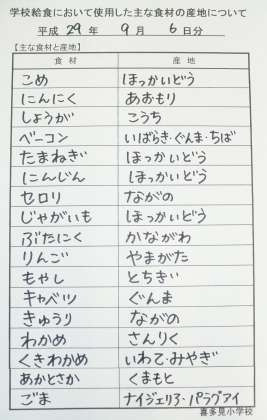 学校給食において使用した主な食材の産地について
平成 29 年 9 月 6 日分
【主な食材と産地】
食材 産地
こめ ほっかいどう
にんにく あおもり
しょうが こうち
ベーコン いばらき・ぐんま・ちば
たまねぎ ほっかいどう
にんじん ほっかいどう
セロリ ながの
じゃがいも ほっかいどう
ぶたにく かながわ
りんご やまがた
もやし とちぎ
キャベツ ぐんま
きゅうり ながの
わかめ さんりく
くきわかめ いわて・みやぎ
あかとさか くまもと
ごま ナイジェリア・パラグアイ
喜多見小学校